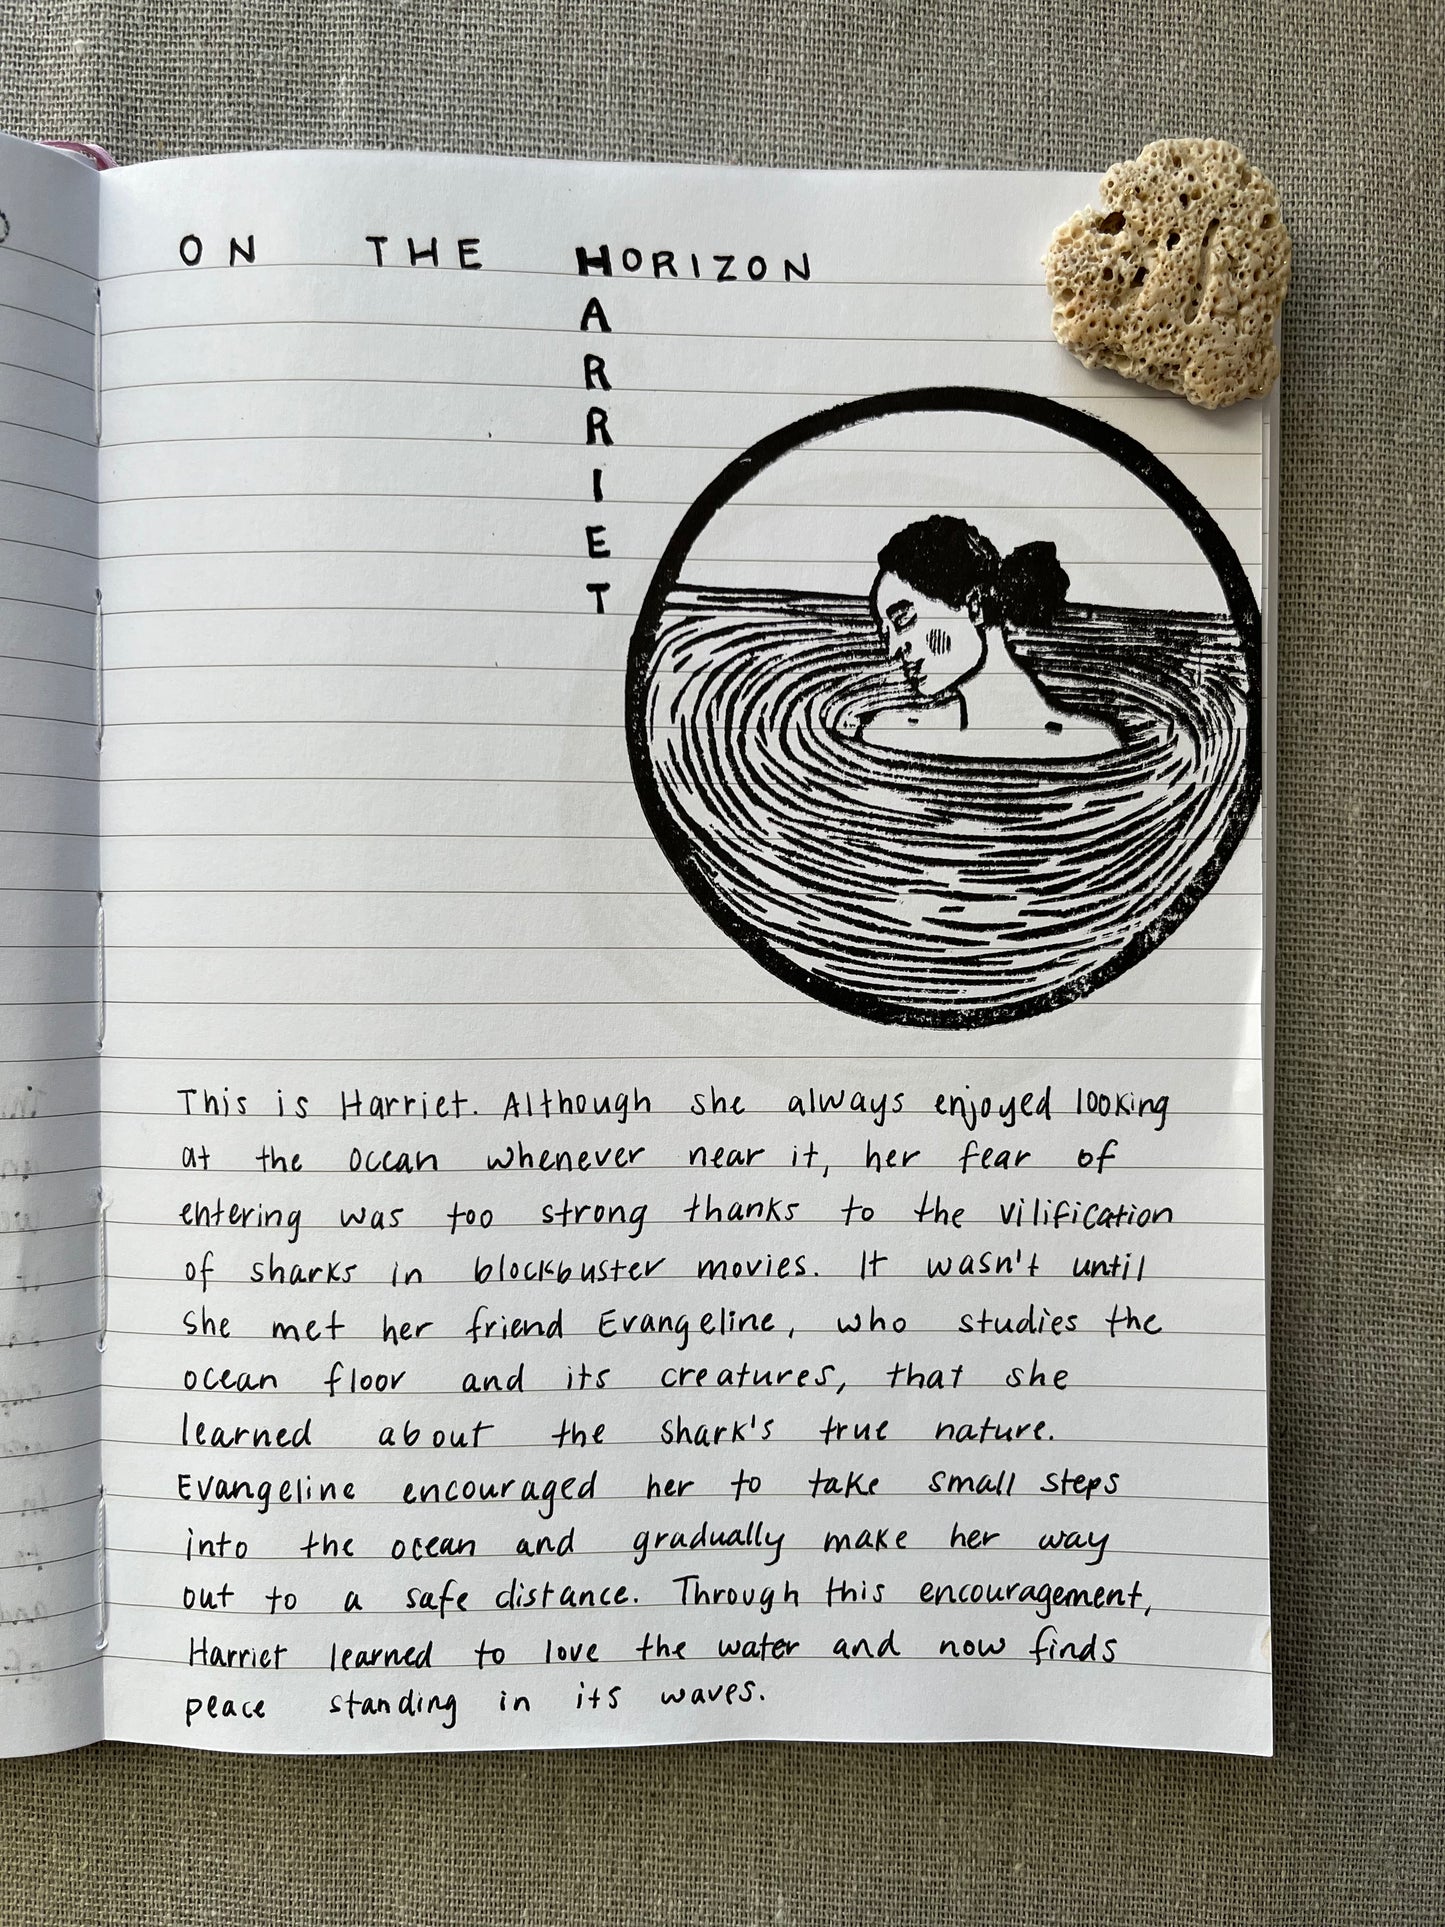 ON THE HORIZON
A
R
R
I
E
T
This is Harriet. Although she always enjoyed looking
at the ocean whenever near it, her fear of
entering was too strong thanks to the vilification
of sharks in blockbuster movies. It wasn't until
she met her friend Evangeline, who studies the
ocean floor and its creatures, that she
learned about the shark's true nature.
Evangeline encouraged her to take small steps
into the ocean and gradually make her way
out to a safe distance. Through this encouragement,
Harriet learned to love the water and now finds
peace standing in its waves.